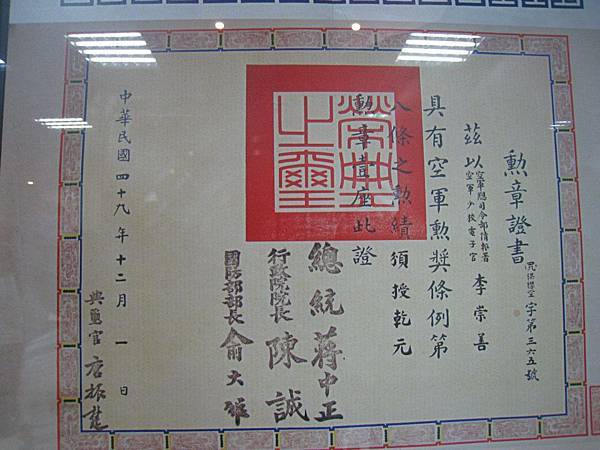 勲章證書
字第三六五號
茲以空軍總司令部情報署
空軍少校電子官
李崇善
具有空軍勲獎條例第
八條之勲績頒授乾元
勲章壹座此證
榮典之璽
總統蔣中正
行政院院長陳誠
國防部部長俞大維
中華民國四十九年十二月一日
典璽官